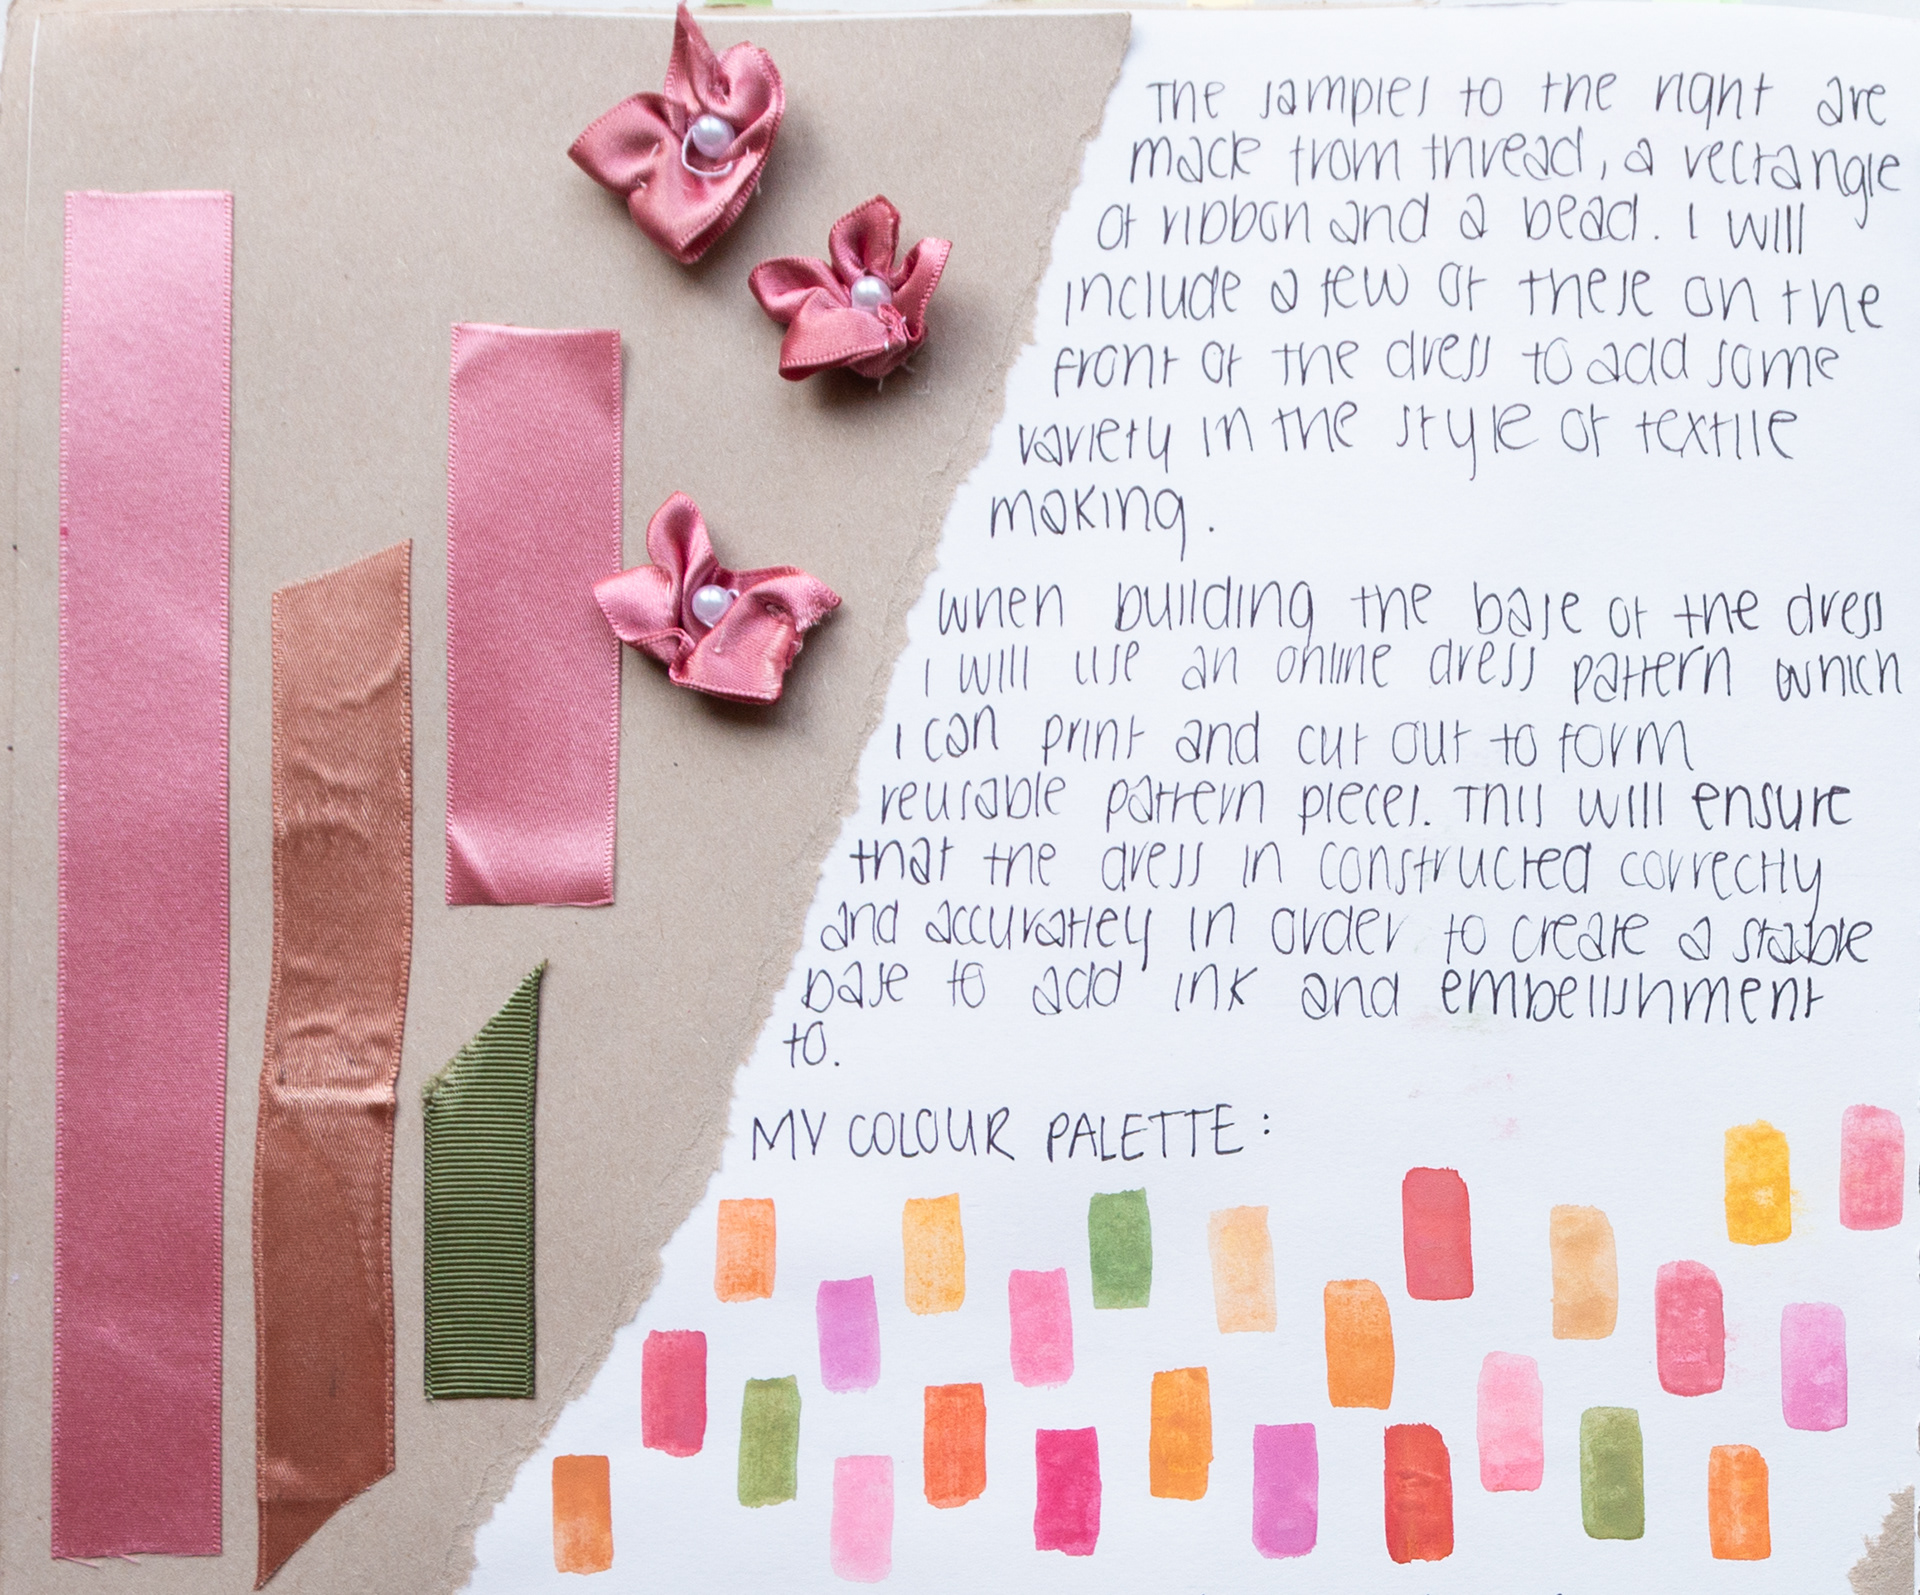 The samples to the right are
made from thread, a rectangle
of ribbon and a bead. I will
include a few of these on the
front of the dress to add some
variety in the style of textile
making.
When building the base of the dress
I will use an online dress pattern which
I can print and cut out to form
reusable pattern pieces. This will ensure
that the dress in constructed correctly
and accuratley in order to create a stable
base to add ink and embellishment
to.
MY COLOUR PALETTE: